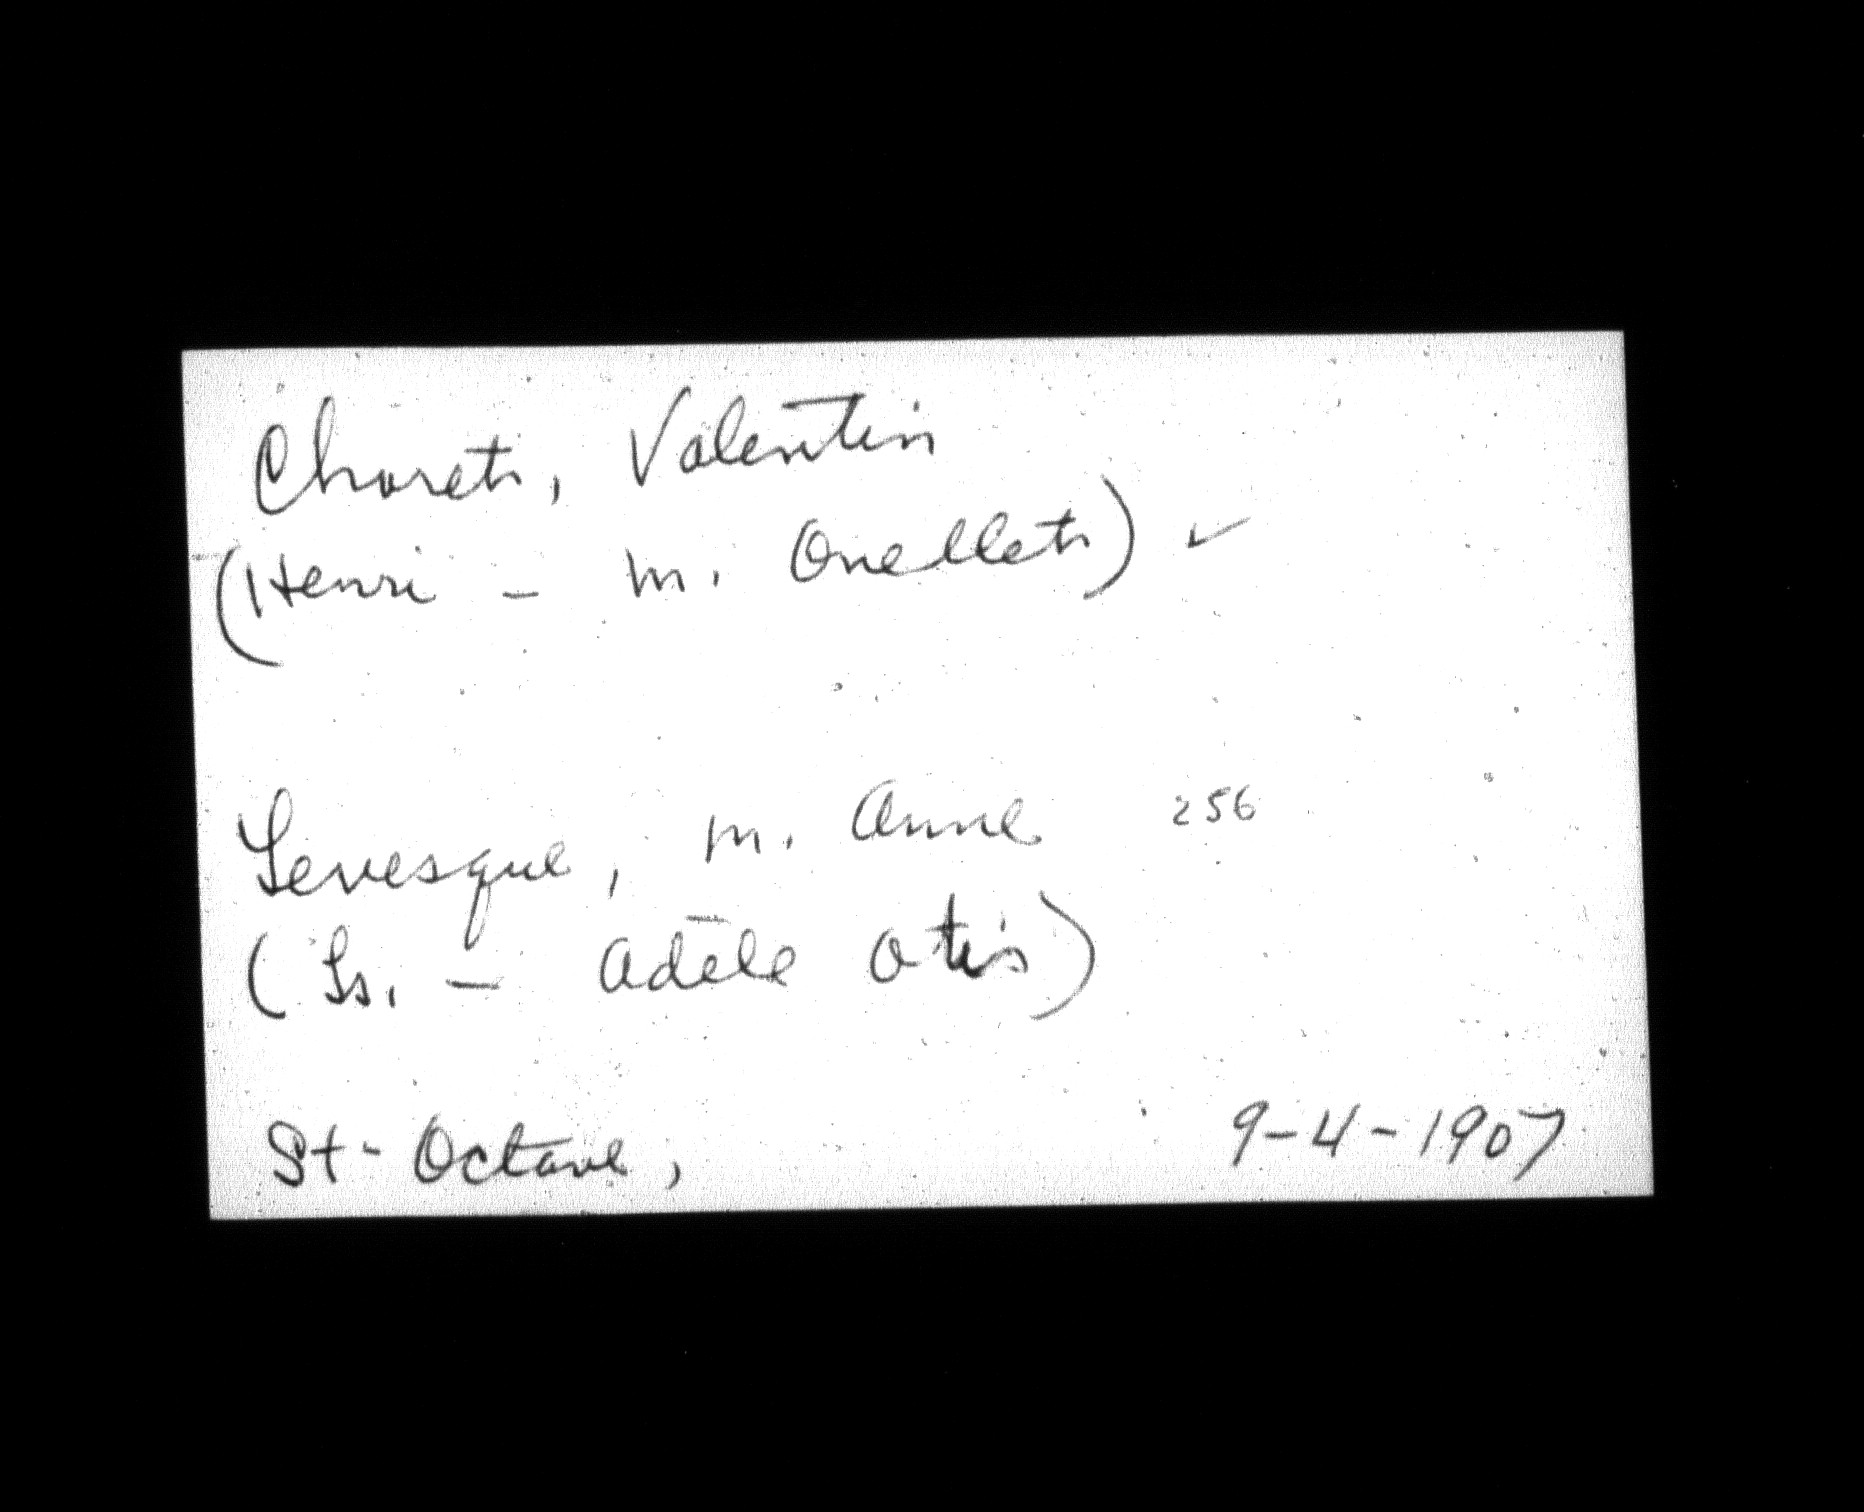 Charette, Valentin
(Henri - m. Ouellette) ✓
Levesque, m. Anne 256
(Ls. - Adèle Otis)
St-Octave, 9-4-1907